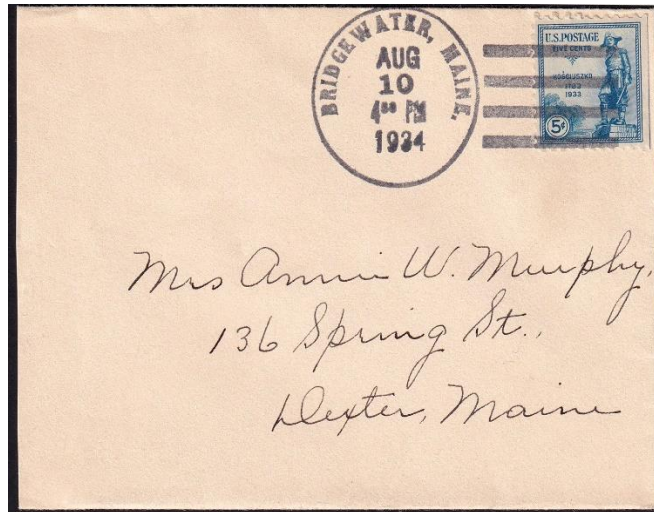 BRIDGEWATER, MAINE.
AUG
10
4⁰⁰ PM
1934
U.S. POSTAGE
FIVE CENTS
KOSCIUSZKO
1783
1933
5¢
Mrs Annie W. Murphy,
136 Spring St.,
Dexter, Maine